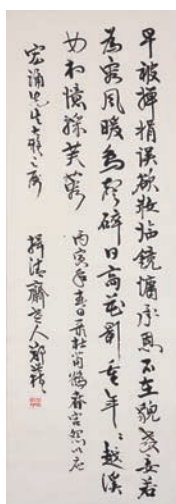 早被嬋娟誤欲妝臨鏡慵承恩不在貌教妾若
為容風暖鳥聲碎日高花影重年々越溪
女相憶採芙蓉 丙寅年春日录杜荀鶴春宮怨以应
宏涌先生大雅之属 揖清齋主人